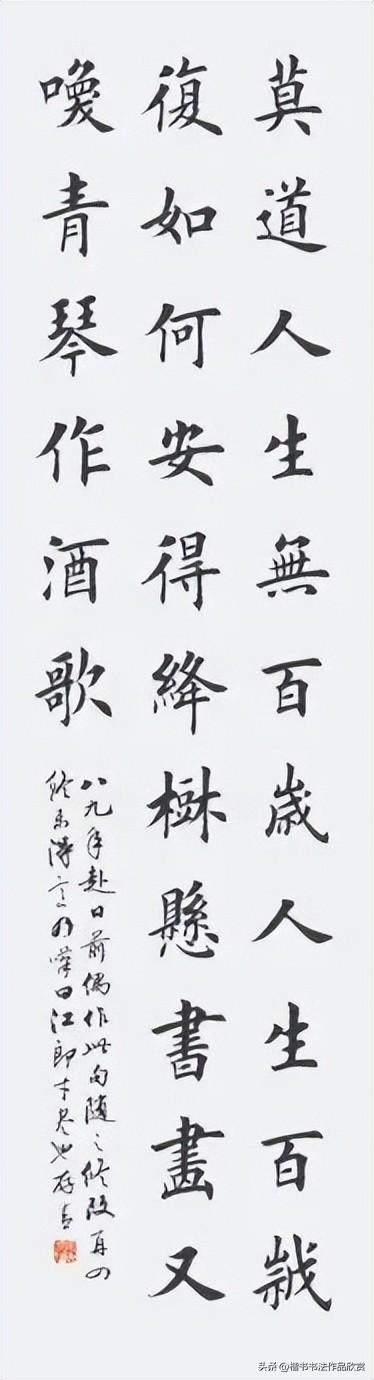 莫道人生無百歲人生百歲
復如何安得絳樹懸書畫又
喚青琴作酒歌
八九年赴日前偶作此句隨之修改再四
終未得意乃嘆曰江郎才盡也
头条@楷书书法作品欣赏